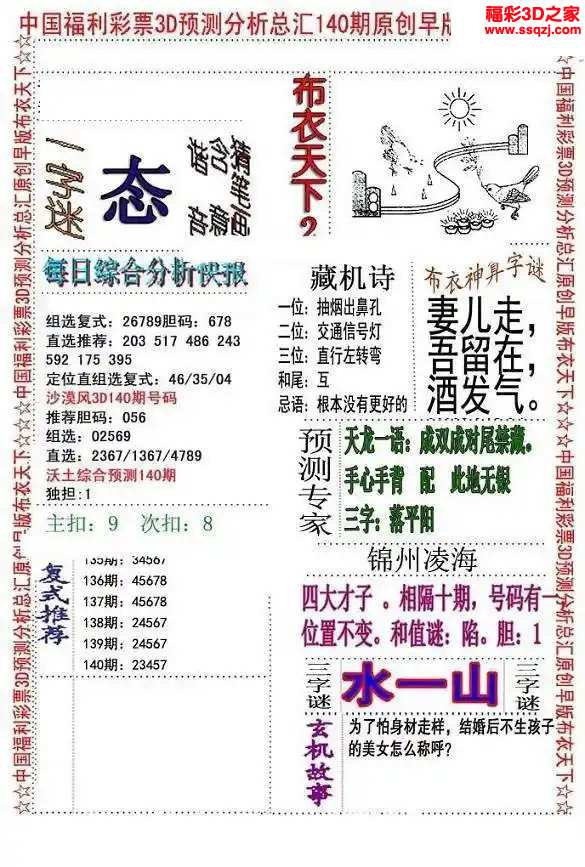 中国福利彩票3D预测分析总汇140期原创早版
福彩3D之家
www.ssqzj.com
☆☆中国福利彩票3D预测分析总汇原创早版布衣天下☆☆
一字谜
态
猜笔画
含藏
谐音
布衣天下2
每日综合分析快报
组选复式：26789胆码：678
直选推荐：203 517 486 243
592 175 395
定位直组选复式：46/35/04
沙漠风3D140期号码
推荐胆码：056
组选：02569
直选：2367/1367/4789
沃土综合预测140期
独担:1
主扣：9 次扣：8
藏机诗
一位：抽烟出鼻孔
二位：交通信号灯
三位：直行左转弯
和尾：互
忌语：根本没有更好的
布衣神算字谜
妻儿走，
吾留在，
酒发气。
预测专家
天龙一语：成双成对尾禁藏。
手心手背 配 此地无银
三字：落平阳
锦州凌海
四大才子 。相隔十期，号码有一
位置不变。和值谜：陷。胆：1
复式推荐
135期：34567
136期：45678
137期：45678
138期：24567
139期：24567
140期：23457
三字谜
水一山
三字谜
玄机故事
为了怕身材走样，结婚后不生孩子
的美女怎么称呼？